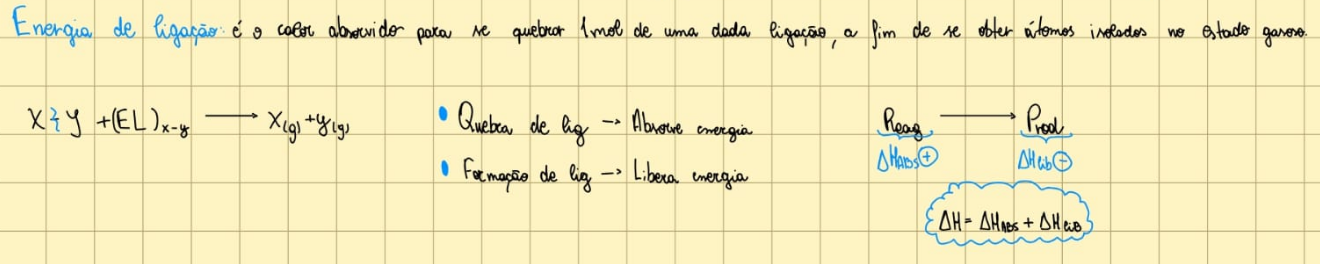 Energia de ligação: é o calor absorvido para se quebrar 1mol de uma dada ligação, a fim de se obter átomos isolados no estado gasoso.
X Y +(EL)x-y → X(g) + Y(g)
• Quebra de lig → Absorve energia
• Formação de lig → Libera energia
Reag → Prod
ΔHABS⊕ ΔHLib⊖
ΔH = ΔHABS + ΔHLIB